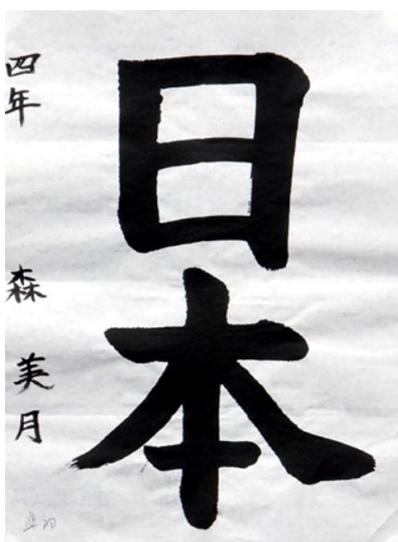 日本
四年 森 美月